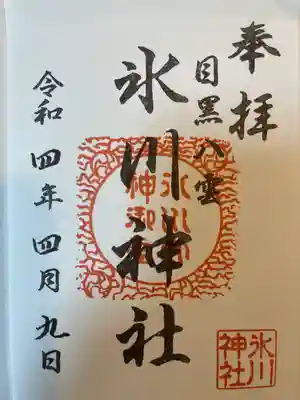 奉拝
目黒八雲
氷川神社
令和四年四月九日
氷川
神社